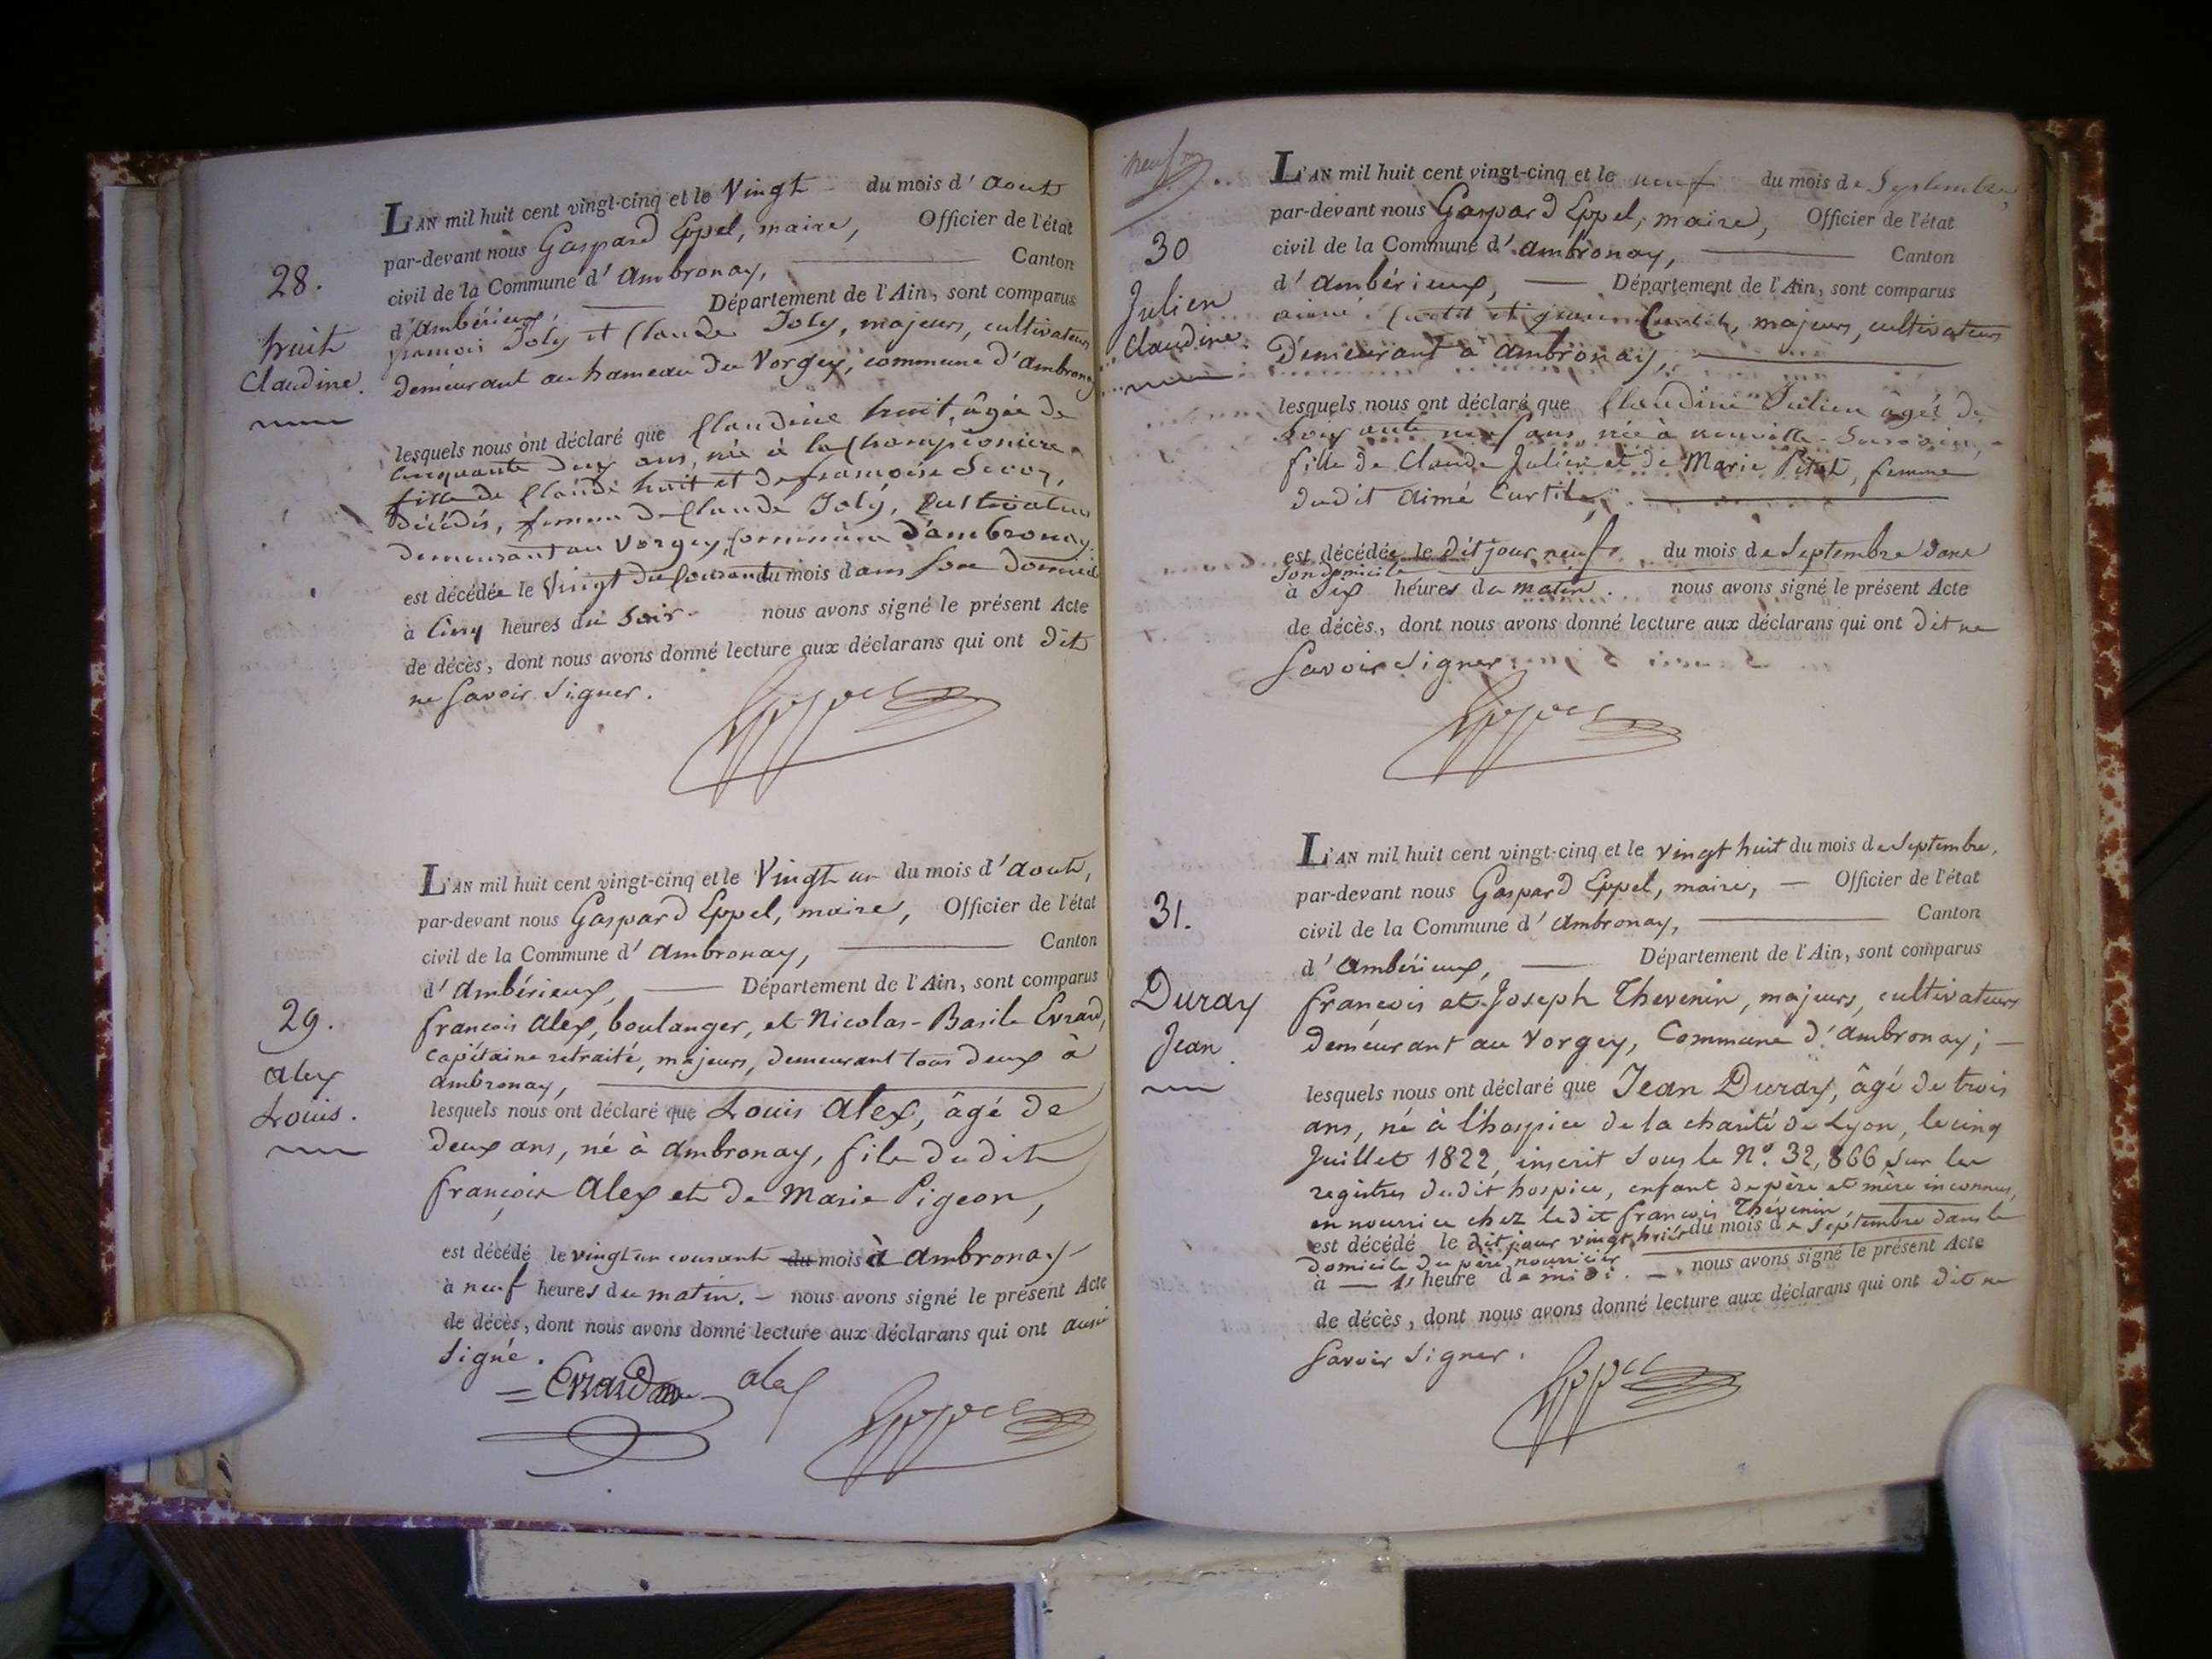 L'AN mil huit cent vingt-cinq et le Vingt du mois d'aout
par-devant nous Gaspard Eppel, maire, Officier de l'état
civil de la Commune d'ambronay, Canton
d'ambérieux, Département de l'Ain, sont comparus
françois Joly et Claude Joly, majeurs, cultivateurs
demeurant au hameau du Vorgey, commune d'ambronay
28.
huit
Claudine.
lesquels nous ont déclaré que Claudine huit, âgée de
Cinquante deux ans, née à la
fille de Claude huit et de françoise
décédés, femme de Claude Joly, Cultivateur
demeurant au Vorgey, Commune d'ambronay
est décédée le Vingt du Courant du mois dans son domicile
à Cinq heures du Soir. nous avons signé le présent Acte
de décès, dont nous avons donné lecture aux déclarans qui ont dit
ne Savoir Signer.
Eppel
L'AN mil huit cent vingt-cinq et le Vingt un du mois d'aout,
par-devant nous Gaspard Eppel, maire, Officier de l'état
civil de la Commune d'ambronay, Canton
d'ambérieux, Département de l'Ain, sont comparus
29.
alex
Louis.
françois alex, boulanger, et Nicolas-Basile Evrard,
capitaine retraité, majeurs, demeurant tous deux à
ambronay,
lesquels nous ont déclaré que Louis alex, âgé de
deux ans, né à ambronay, fils dudit
françois alex et de Marie Pigeon,
est décédé le vingt un courant du mois à ambronay
à neuf heures du matin. nous avons signé le présent Acte
de décès, dont nous avons donné lecture aux déclarans qui ont aussi
Signé.
Evrard alex Eppel
neuf
L'AN mil huit cent vingt-cinq et le neuf du mois de Septembre,
par-devant nous Gaspard Eppel, maire, Officier de l'état
civil de la Commune d'ambronay, Canton
d'ambérieux, Département de l'Ain, sont comparus
30
Julien
Claudine.
aimé Curtil et Curtil, majeurs, cultivateurs
Demeurant à ambronay,
lesquels nous ont déclaré que Claudine Julien âgée de
Soixante neuf ans, née à neuville
fille de Claude Julien et de Marie Pitat, femme
dudit aimé Curtil,
est décédée le dit jour neuf du mois de Septembre dans
son domicile
à Six heures du matin. nous avons signé le présent Acte
de décès, dont nous avons donné lecture aux déclarans qui ont dit ne
Savoir Signer.
Eppel
L'AN mil huit cent vingt-cinq et le vingt huit du mois de Septembre,
par-devant nous Gaspard Eppel, maire, Officier de l'état
civil de la Commune d'ambronay, Canton
d'ambérieux, Département de l'Ain, sont comparus
31.
Duray
Jean.
françois et Joseph Thevenin, majeurs, cultivateurs
demeurant au Vorgey, Commune d'ambronay;
lesquels nous ont déclaré que Jean Duray, âgé de trois
ans, né à l'hospice de la charité de Lyon, le cinq
Juillet 1822, inscrit sous le N° 32,866 sur les
registres dudit hospice, enfant de père et mère inconnus,
en nourrice chez le dit françois Thévenin
est décédé le dit jour vingt huit du mois de Septembre dans le
domicile du père nourricier
à 1 heure de midi. nous avons signé le présent Acte
de décès, dont nous avons donné lecture aux déclarans qui ont dit ne
Savoir Signer.
Eppel